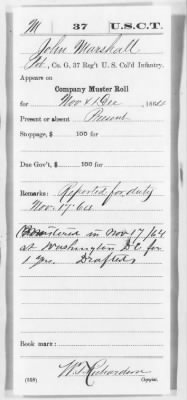 M 37 U.S.C.T.
John Marshall
Pvt, Co. G, 37 Reg't U. S. Col'd Infantry.
Appears on
Company Muster Roll
for Nov & Dec, 1864
Present or absent Present
Stoppage, $ 100 for
Due Gov't, $ 100 for
Remarks: Reported for duty
Nov. 17. 64
(Mustered in Nov 17/64
at Washington D.C. for
1 yr. Drafted)
Book mark:
W. T. Richardson
(358) Copyist.